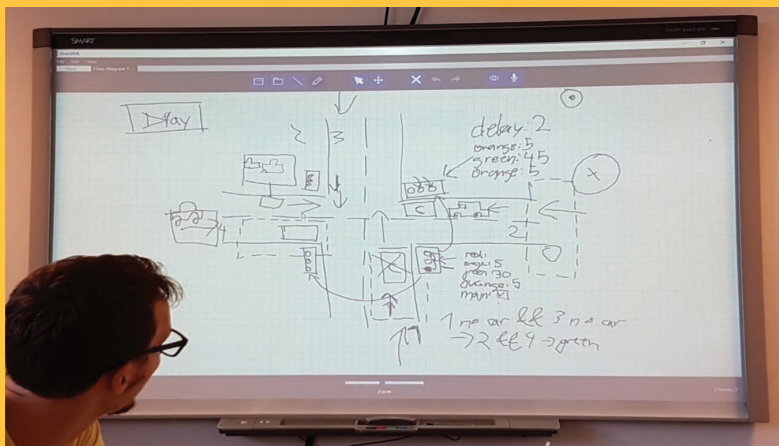 SMART
Play
2 3
delay: 2
orange: 5
green: 45
orange: 5
X
C
4
2
red:
orange: 5
green: 30
orange: 5
main: ☑
1 no car && 3 no car
→ 2 && 4 → green
Zoom